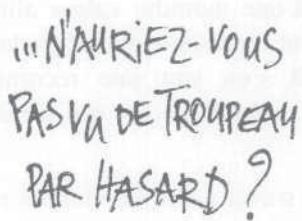 ...N'AURIEZ-VOUS
PAS VU DE TROUPEAU
PAR HASARD ?